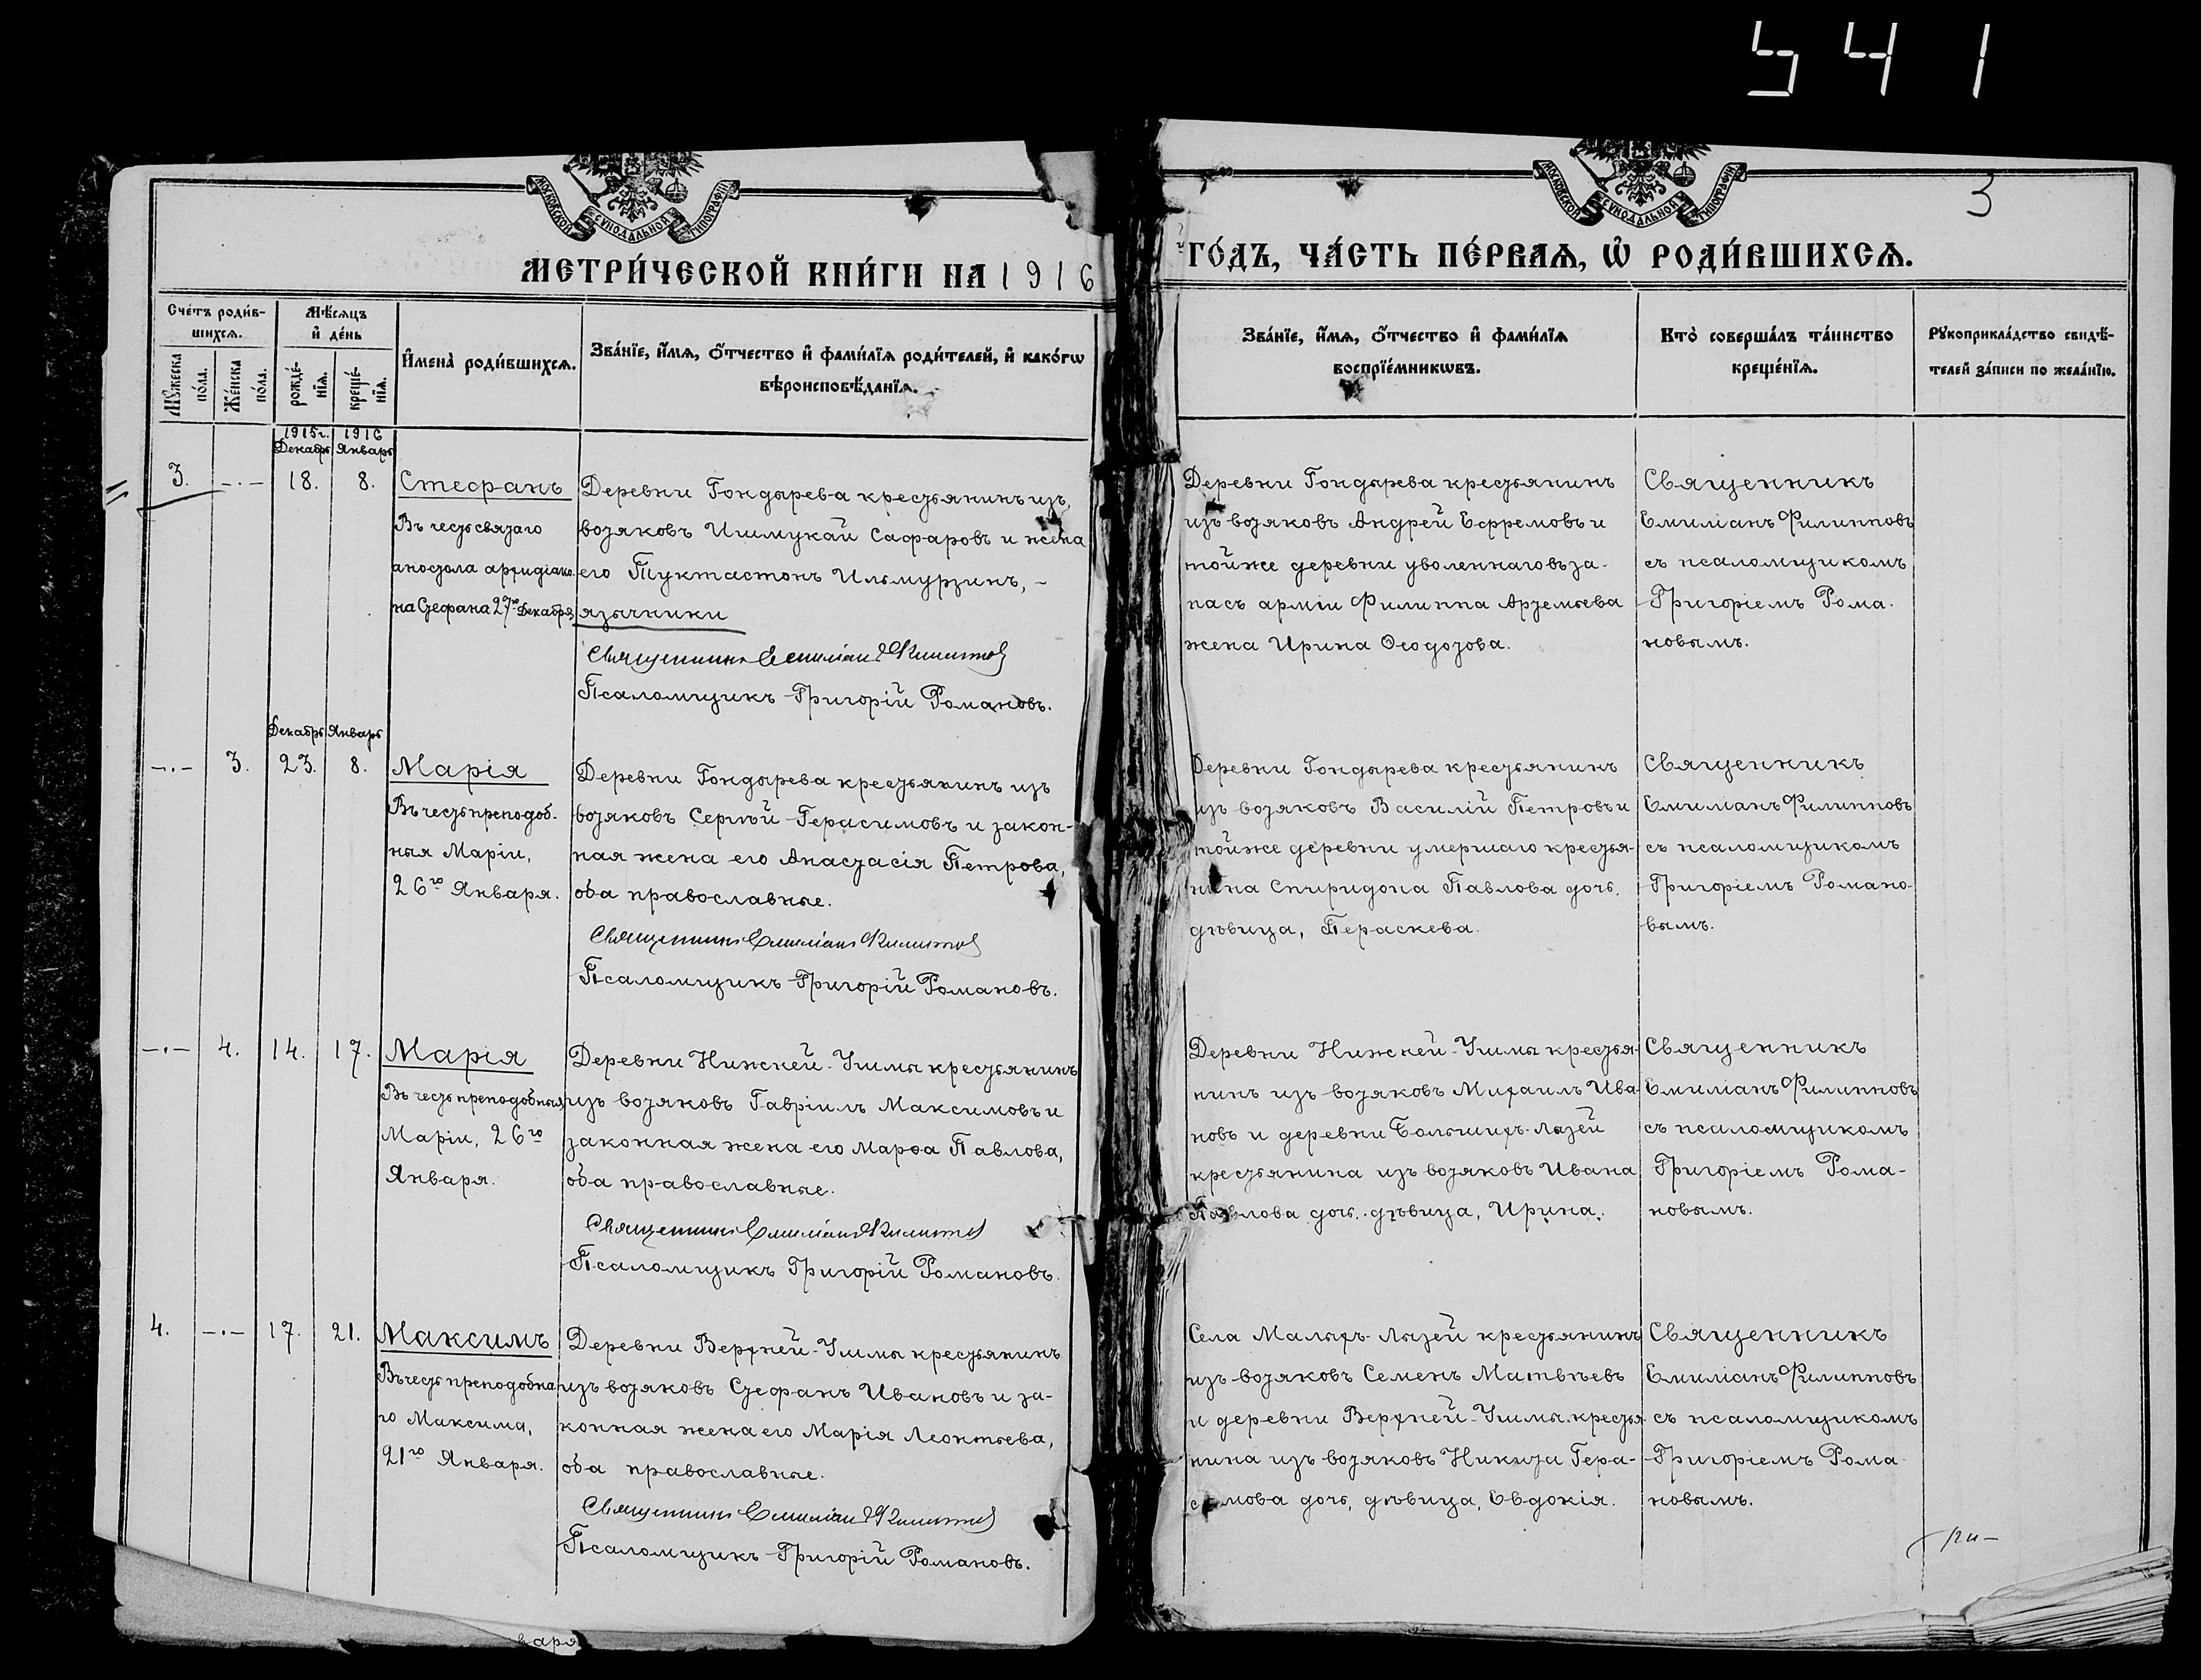 541
МОСКОВСКОЙ СѴНОДАЛЬНОЙ ТИПОГРАФІИ
МОСКОВСКОЙ СѴНОДАЛЬНОЙ ТИПОГРАФІИ
3
МЕТРИ́ЧЕСКОЙ КНИ́ГИ НА 1916
ГО́ДЪ, ЧА́СТЬ ПЕ́РВАѦ, Ѡ҆ РОДИ́ВШИХСѦ.
Сче́тъ роди́в-
шихсѧ.
Мѣ́сѧцъ
и҆ де́нь
Мꙋ́жеска
по́ла.
Же́нска
по́ла.
рожде́-
нїѧ.
креще́-
нїѧ.
И҆мена̀ роди́вшихсѧ.
Зва́нїе, и҆́мѧ, о҆́тчество и҆ фами́лїѧ роди́телей, и҆ како́гѡ
вѣроисповѣ́данїѧ.
Зва́нїе, и҆́мѧ, о҆́тчество и҆ фами́лїѧ
воспрїе́мникѡвъ.
Кто̀ соверша́лъ та́инство
креще́нїѧ.
Рꙋкоприкла́дство свидѣ́-
телей за́писи по жела́нїю.
1915г. 1916
Декабрь Январь
3. -.- 18. 8.
Стефанъ
Въ честь святаго
апостола архидіако-
на Стефана 27го Декабря.
Деревни Гондырева крестьянинъ изъ
вотяковъ Ишмукай Сафаровъ и жена
его Туктастонъ Ильмурзинъ, -
язычники
Священникъ Емиліанъ Филипповъ
Псаломщикъ Григорій Романовъ.
Деревни Гондырева крестьянинъ
изъ вотяковъ Андрей Ефремовъ и
той же деревни уволеннаго въ за-
пасъ арміи Филиппа Артемьева
жена Ирина Ѳеодотова.
Священникъ
Емиліанъ Филипповъ
съ псаломщикомъ
Григоріемъ Рома-
новымъ.
Декабрь Январь
-.- 3. 23. 8.
Марія
Въ честь преподоб-
ныя Маріи,
26го Января.
Деревни Гондырева крестьянинъ изъ
вотяковъ Сергѣй Герасимовъ и закон-
ная жена его Анастасія Петрова,
оба православные.
Священникъ Емиліанъ Филипповъ
Псаломщикъ Григорій Романовъ.
Деревни Гондырева крестьянинъ
изъ вотяковъ Василій Петровъ и
той же деревни умершаго крестья-
нина Спиридона Павлова дочь,
дѣвица, Параскева.
Священникъ
Емиліанъ Филипповъ
съ псаломщикомъ
Григоріемъ Романо-
вымъ.
-.- 4. 14. 17.
Марія
Въ честь преподобныя
Маріи, 26го
Января.
Деревни Нижней-Ушмы крестьянинъ
изъ вотяковъ Гавріилъ Максимовъ и
законная жена его Марѳа Павлова,
оба православные.
Священникъ Емиліанъ Филипповъ
Псаломщикъ Григорій Романовъ.
Деревни Нижней-Ушмы крестья-
нинъ изъ вотяковъ Михаилъ Ива-
новъ и деревни Большихъ-Лызей
крестьянина изъ вотяковъ Ивана
Павлова дочь, дѣвица, Ирина.
Священникъ
Емиліанъ Филипповъ
съ псаломщикомъ
Григоріемъ Рома-
новымъ.
4. -.- 17. 21.
Максимъ
Въ честь преподобна-
го Максима,
21го Января.
Деревни Верхней-Ушмы крестьянинъ
изъ вотяковъ Стефанъ Ивановъ и за-
конная жена его Марія Леонтьева,
оба православные.
Священникъ Емиліанъ Филипповъ
Псаломщикъ Григорій Романовъ.
Села Малыхъ-Лызей крестьянинъ
изъ вотяковъ Семенъ Матвѣевъ
и деревни Верхней-Ушмы крестья-
нина изъ вотяковъ Никиты Гера-
симова дочь, дѣвица, Евдокія.
Священникъ
Емиліанъ Филипповъ
съ псаломщикомъ
Григоріемъ Рома-
новымъ.
варя